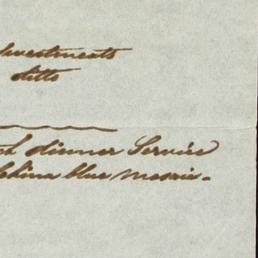 Investments
ditto
dinner Service
China blue mosaic.